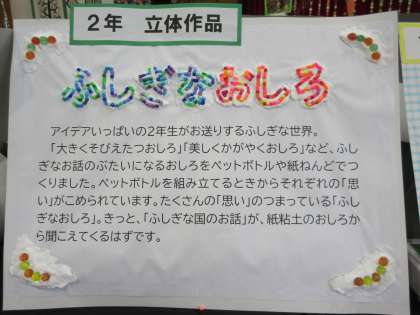 2年 立体作品
ふしぎなおしろ
アイデアいっぱいの2年生がお送りするふしぎな世界。
「大きくそびえたつおしろ」「美しくかがやくおしろ」など、ふし
ぎなお話のぶたいになるおしろをペットボトルや紙ねんどでつ
くりました。ペットボトルを組み立てるときからそれぞれの「思
い」がこめられています。たくさんの「思い」のつまっている「ふし
ぎなおしろ」。きっと、「ふしぎな国のお話」が、紙粘土のおしろか
ら聞こえてくるはずです。